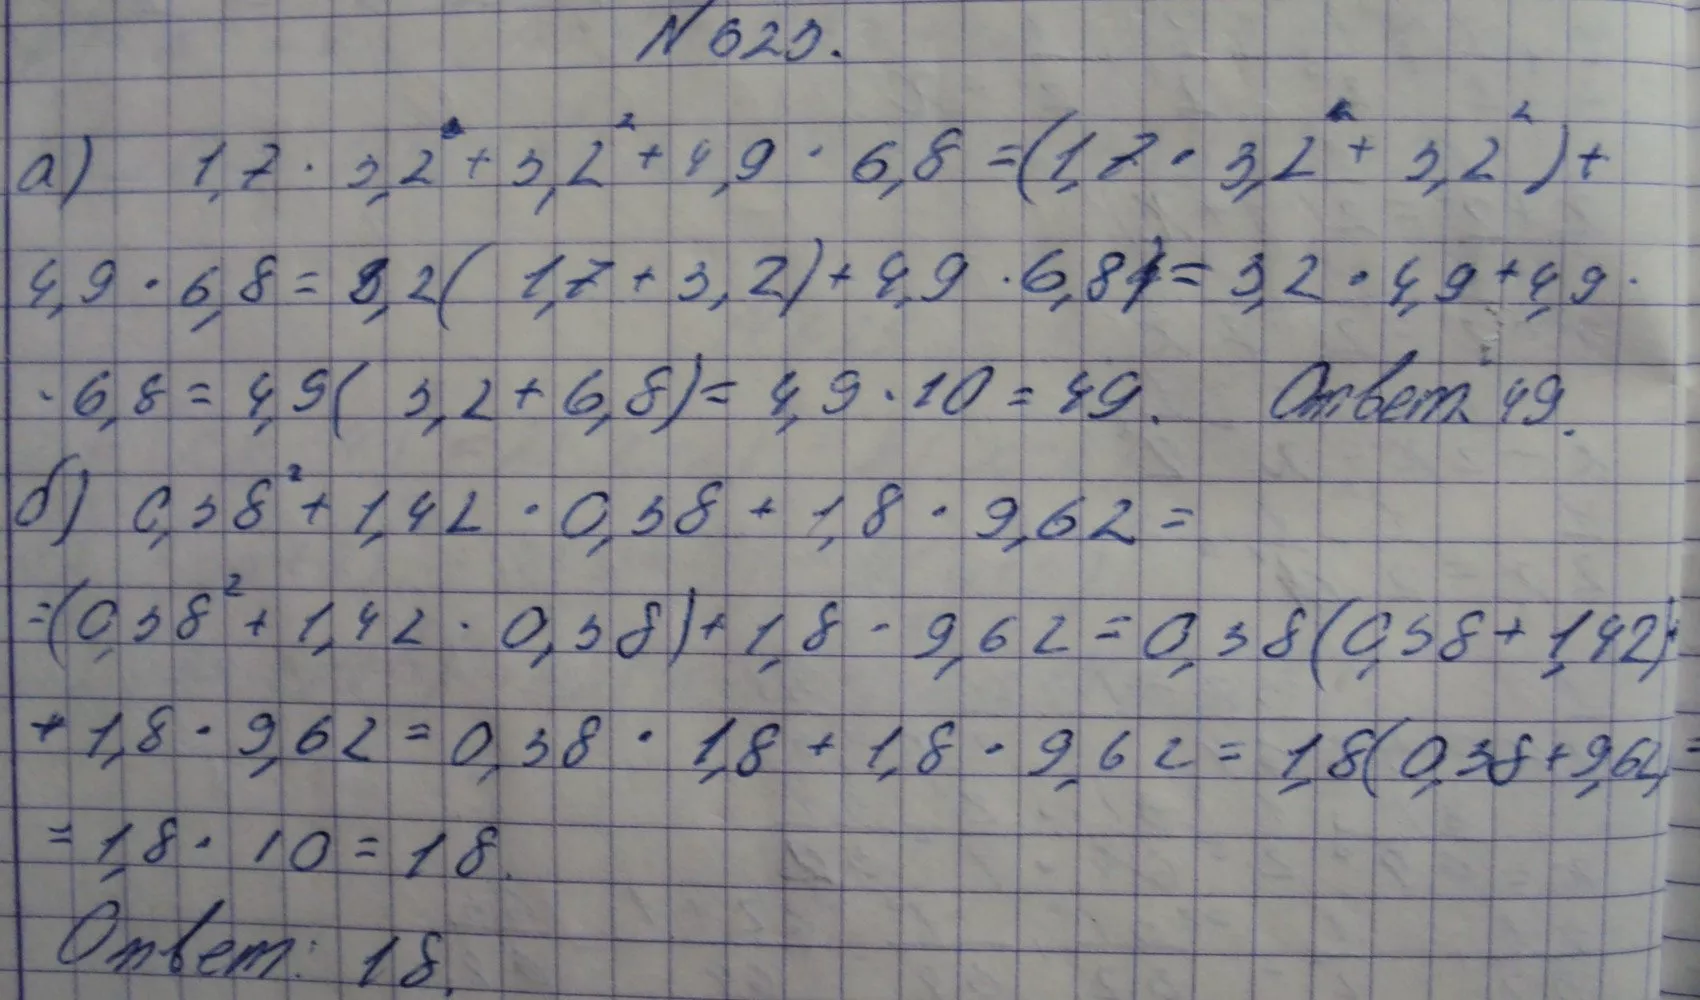 № 623.
а) 1,7 · 3,2 + 3,2² + 4,9 · 6,8 = (1,7 · 3,2 + 3,2²) +
4,9 · 6,8 = 3,2( 1,7 + 3,2) + 4,9 · 6,8 = 3,2 · 4,9 + 4,9 ·
· 6,8 = 4,9( 3,2 + 6,8) = 4,9 · 10 = 49. Ответ: 49.
б) 0,38² + 1,42 · 0,38 + 1,8 · 9,62 =
= (0,38² + 1,42 · 0,38) + 1,8 · 9,62 = 0,38(0,38 + 1,42) +
+ 1,8 · 9,62 = 0,38 · 1,8 + 1,8 · 9,62 = 1,8(0,38 + 9,62) =
= 1,8 · 10 = 18.
Ответ: 18.